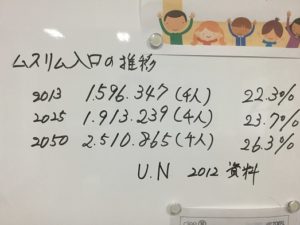 ムスリム人口の推移
2013 1.596.347(千人) 22.3%
2025 1.913.239(千人) 23.7%
2050 2.510.865(千人) 26.3%
U.N 2012 資料